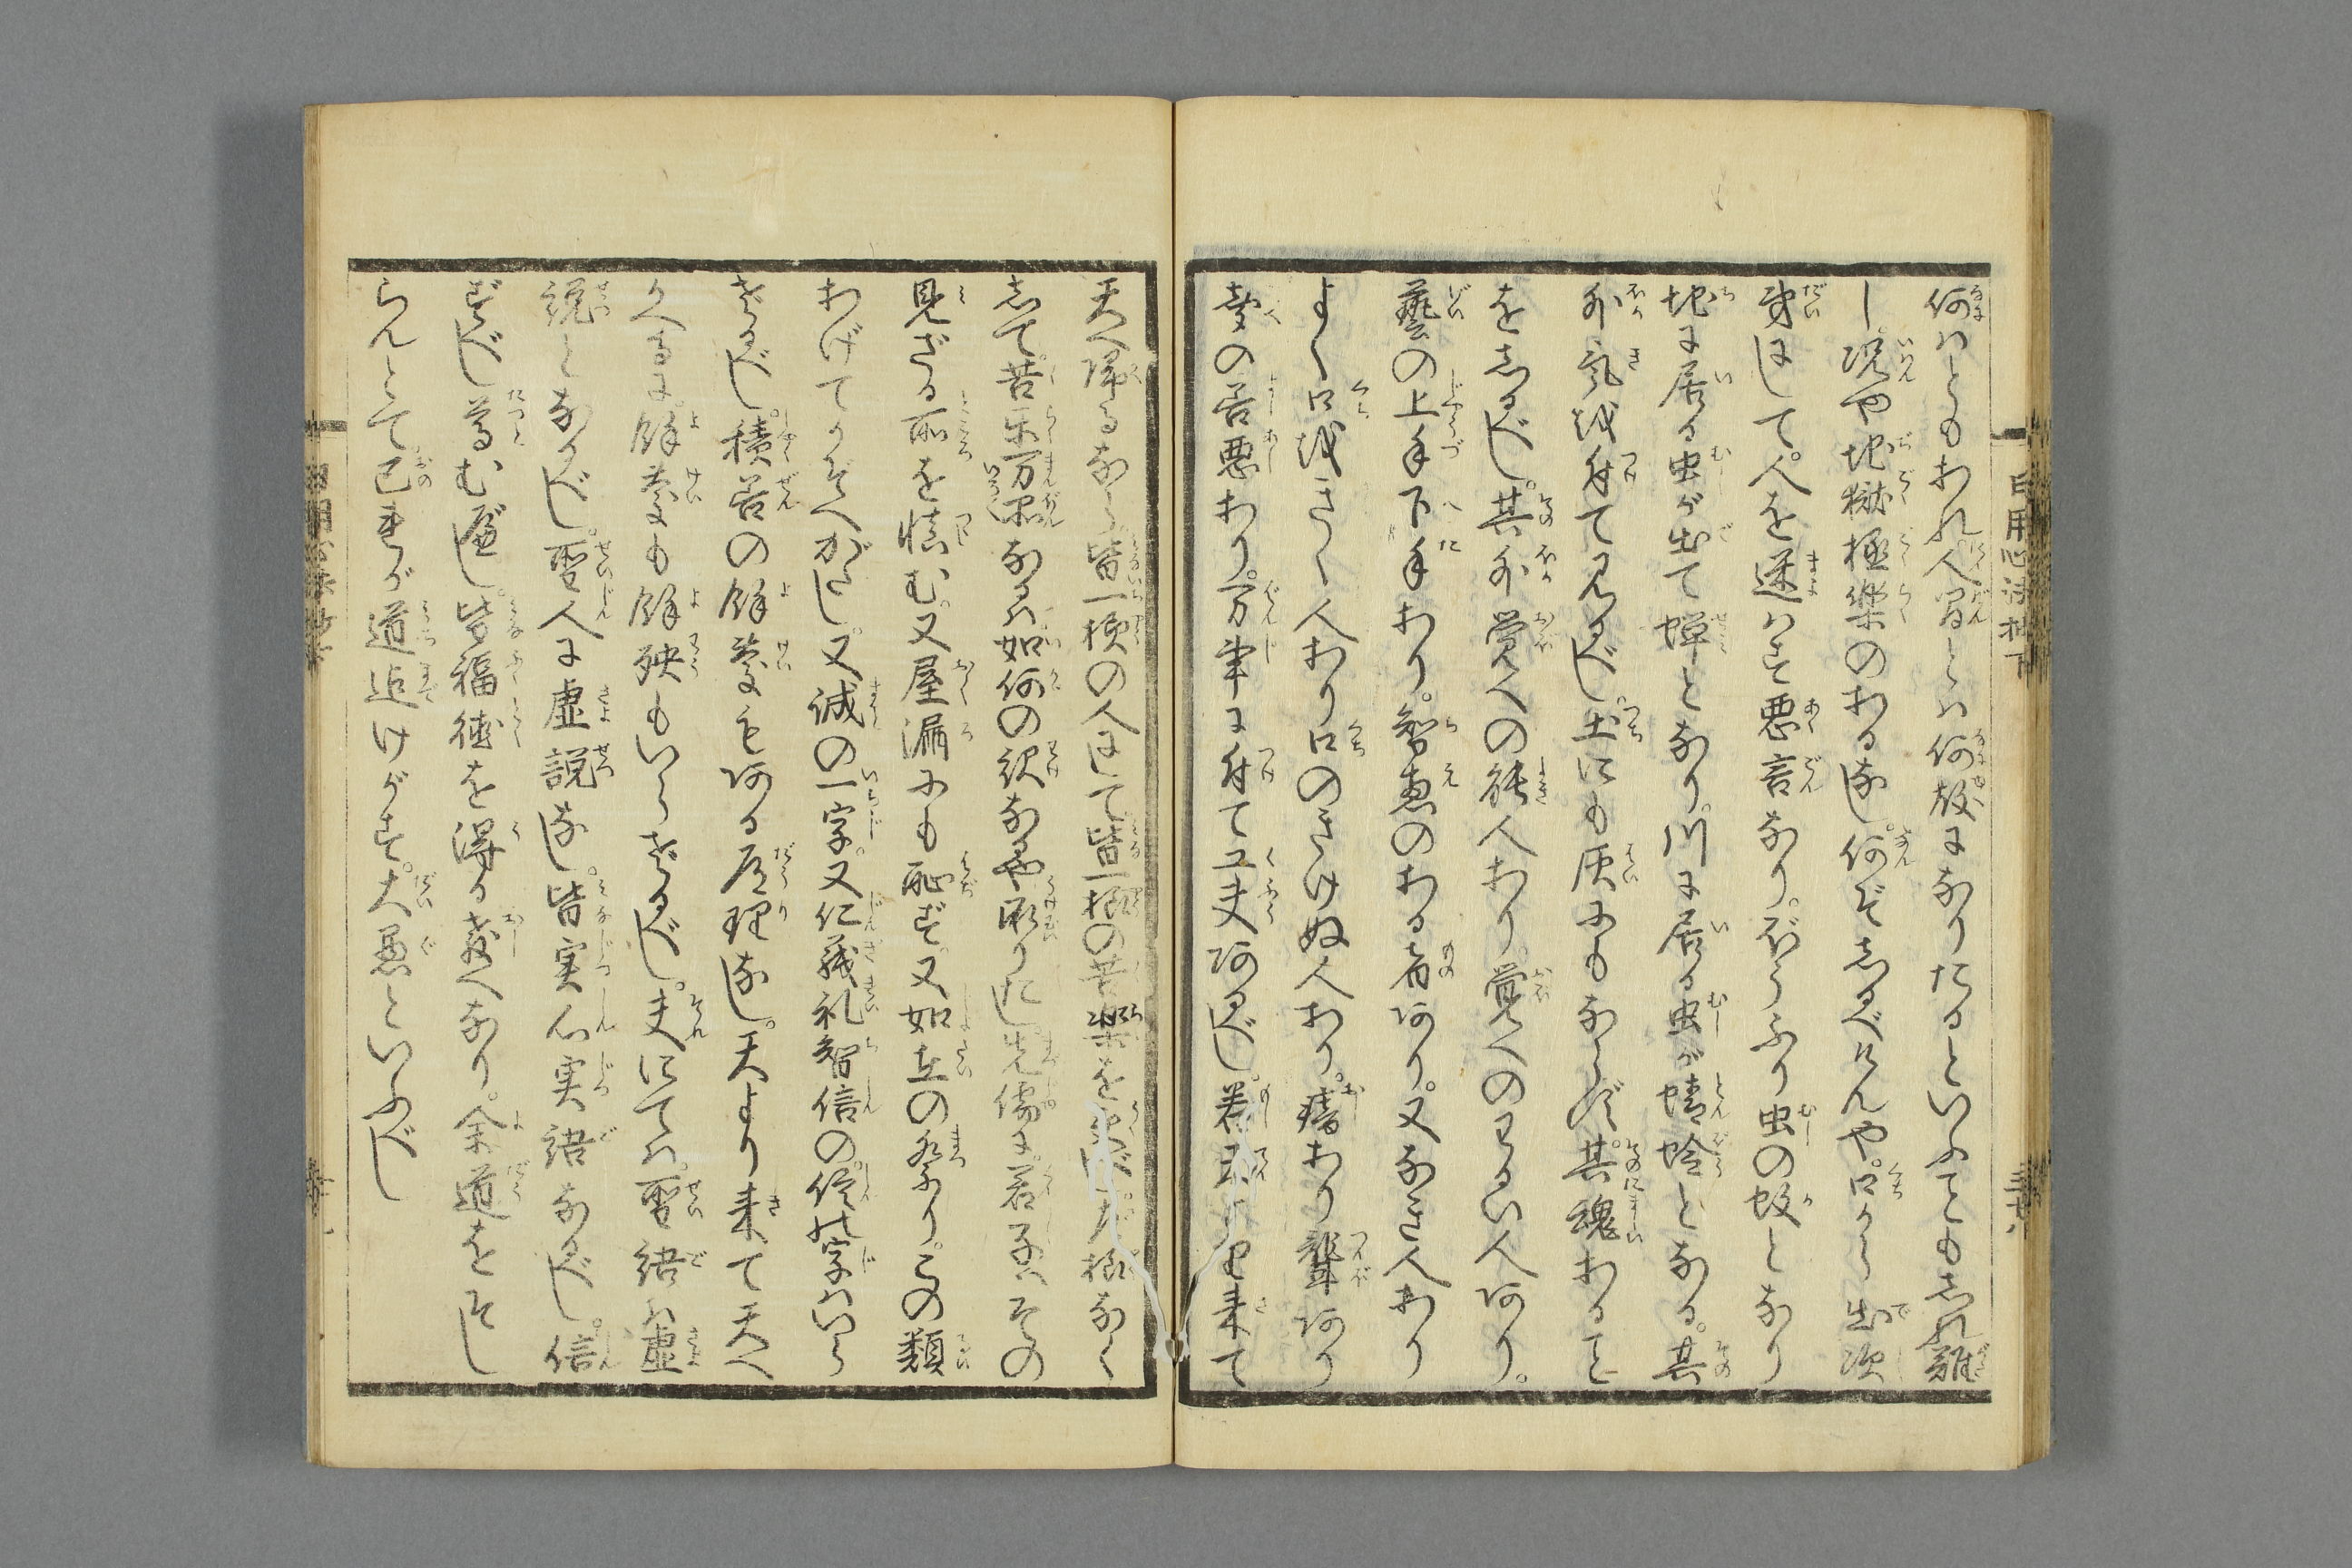 何ハともあれ人間とハ何故になりたるといふ事も志れ難
し況や地獄極楽のある無し何ぞ志るべけんや口から出次
第にして人を迷ハす悪言なりぼうふり虫の蚊となり
地に居る虫が出て蝉となり川に居る虫が蜻蛉となる其
外気を付て見るべし土にも灰にもならず其魂ある事
を志るべし其外覚への能人あり覚へのわるい人あり
藝の上手下手あり智恵のある者あり又なき人あり
よく口をきく人あり口のきけぬ人あり瘖あり聾あり
夢の善悪あり万事に付て工夫あるべし若天より来て
天へ帰るなら皆一様の人にして皆一様の苦楽を受べし左様なく
志て苦楽万品なるハ如何の訳なるや斗りたし先儒に君子ハその
見ざる所を慎む又屋漏にも恥ず又如在の祭りこの類
あげてかぞへがたし又誠の一字又仁義礼智信の信の字ハいら
ざるべし積善の餘慶もある道理無し天より来て天へ
かへるに餘慶も餘殃もいらざるべし夫にてハ聖語ハ虚
説となるべし聖人に虚説無し皆実心実語なるべし信
ずべし尊む可し皆福徳を得る教へなり余道をそし
らんとて己れが道迄けがす大愚といふべし
日用心法抄下